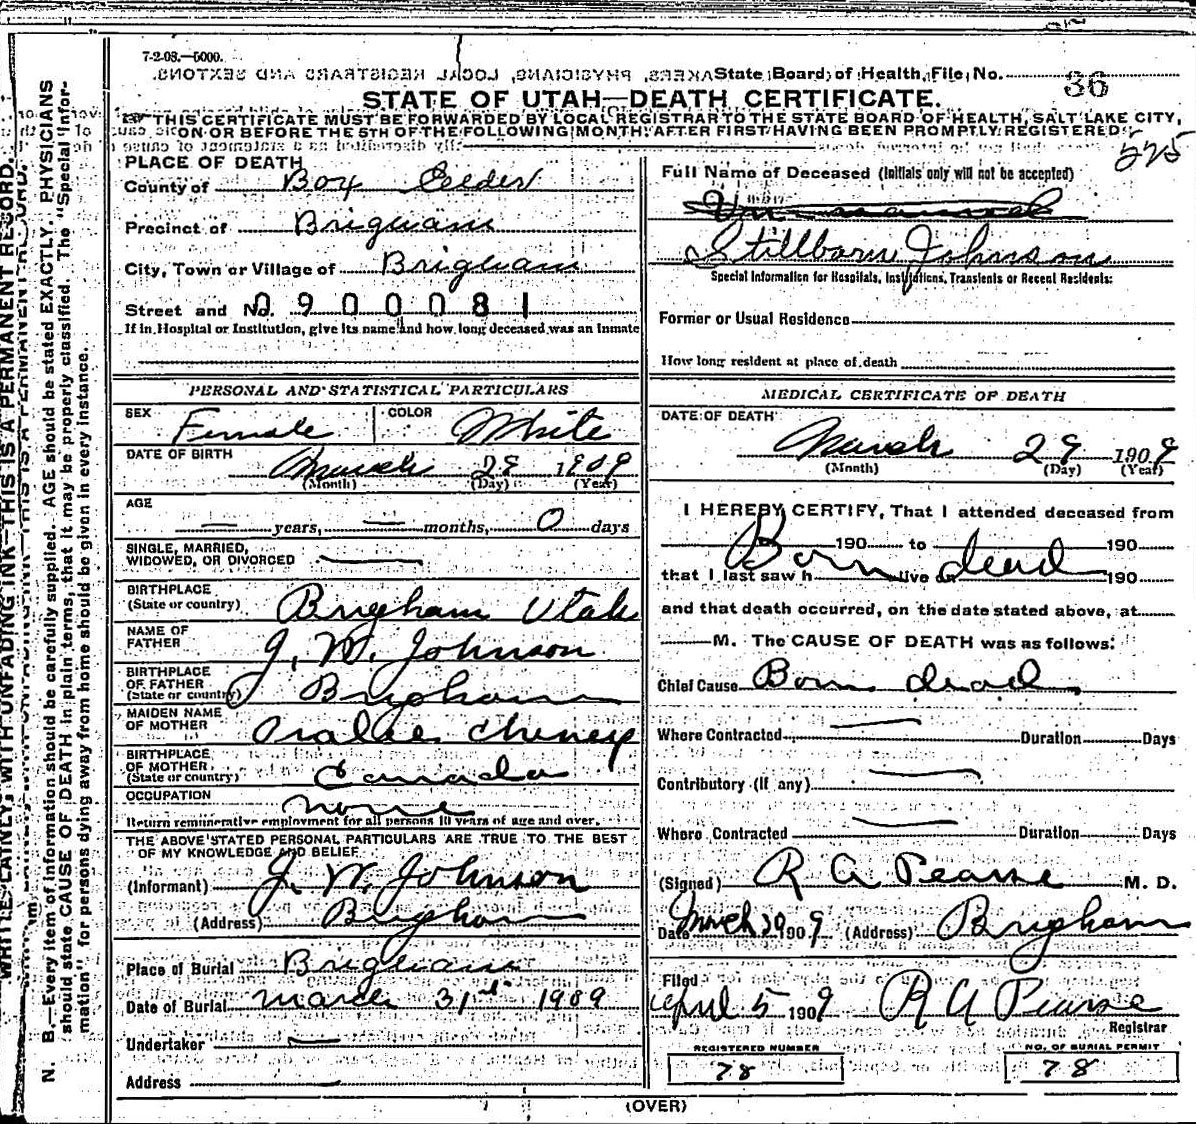 7-2-08.—5000.
State Board of Health, File No. 36
STATE OF UTAH—DEATH CERTIFICATE.
THIS CERTIFICATE MUST BE FORWARDED BY LOCAL REGISTRAR TO THE STATE BOARD OF HEALTH, SALT LAKE CITY,
ON OR BEFORE THE 5TH OF THE FOLLOWING MONTH, AFTER FIRST HAVING BEEN PROMPTLY REGISTERED.
225
PLACE OF DEATH
County of Box Elder
Precinct of Brigham
City, Town or Village of Brigham
Street and No. 0900081
If in Hospital or Institution, give its name and how long deceased was an inmate
PERSONAL AND STATISTICAL PARTICULARS
SEX Female COLOR White
DATE OF BIRTH March 29 1909
(Month) (Day) (Year)
AGE
— years, — months, 0 days
SINGLE, MARRIED,
WIDOWED, OR DIVORCED —
BIRTHPLACE
(State or country) Brigham Utah
NAME OF
FATHER J. W. Johnson
BIRTHPLACE
OF FATHER
(State or country) Brigham
MAIDEN NAME
OF MOTHER Oralee Cheney
BIRTHPLACE
OF MOTHER
(State or country) Canada
OCCUPATION none
Return remunerative employment for all persons 10 years of age and over.
THE ABOVE STATED PERSONAL PARTICULARS ARE TRUE TO THE BEST
OF MY KNOWLEDGE AND BELIEF
(Informant) J. W. Johnson
(Address) Brigham
Place of Burial Brigham
Date of Burial March 31st 1909
Undertaker —
Address
Full Name of Deceased (Initials only will not be accepted)
Stillborn Johnson
Special Information for Hospitals, Institutions, Transients or Recent Residents:
Former or Usual Residence
How long resident at place of death
MEDICAL CERTIFICATE OF DEATH
DATE OF DEATH
March 29 1909
(Month) (Day) (Year)
I HEREBY CERTIFY, That I attended deceased from
190 to 190
Born dead
that I last saw h live on 190
and that death occurred, on the date stated above, at
M. The CAUSE OF DEATH was as follows:
Chief Cause Born dead
Where Contracted — Duration Days
Contributory (If any) —
Where Contracted — Duration Days
(Signed) R A Pearse M. D.
Date March 30 1909 (Address) Brigham
Filed
April 5 1909 R A Pearse
Registrar
REGISTERED NUMBER
78
NO. OF BURIAL PERMIT
78
(OVER)
WRITE PLAINLY, WITH UNFADING INK—THIS IS A PERMANENT RECORD.
N. B.—Every item of information should be carefully supplied. AGE should be stated EXACTLY. PHYSICIANS
should state CAUSE OF DEATH in plain terms, that it may be properly classified. The "Special Infor-
mation" for persons dying away from home should be given in every instance.